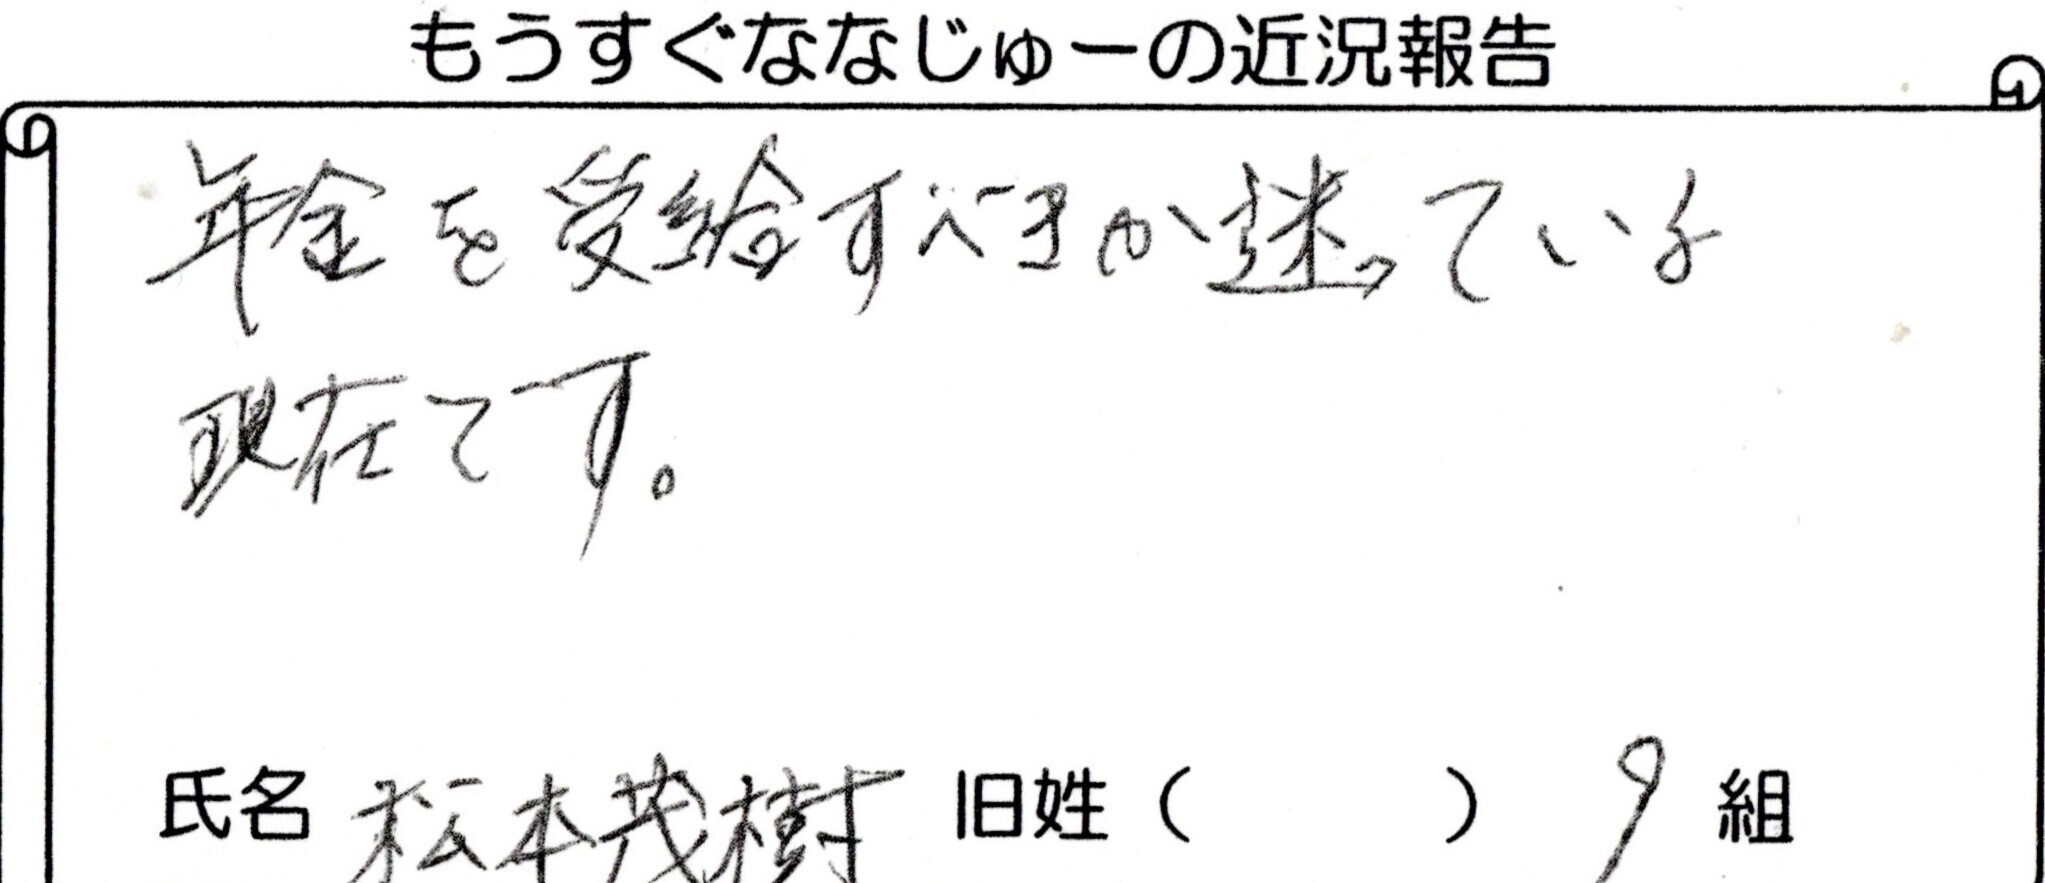 もうすぐななじゅーの近況報告
年金を受給すべきか迷っている
現在です。
氏名 松本茂樹 旧姓( ) 9組